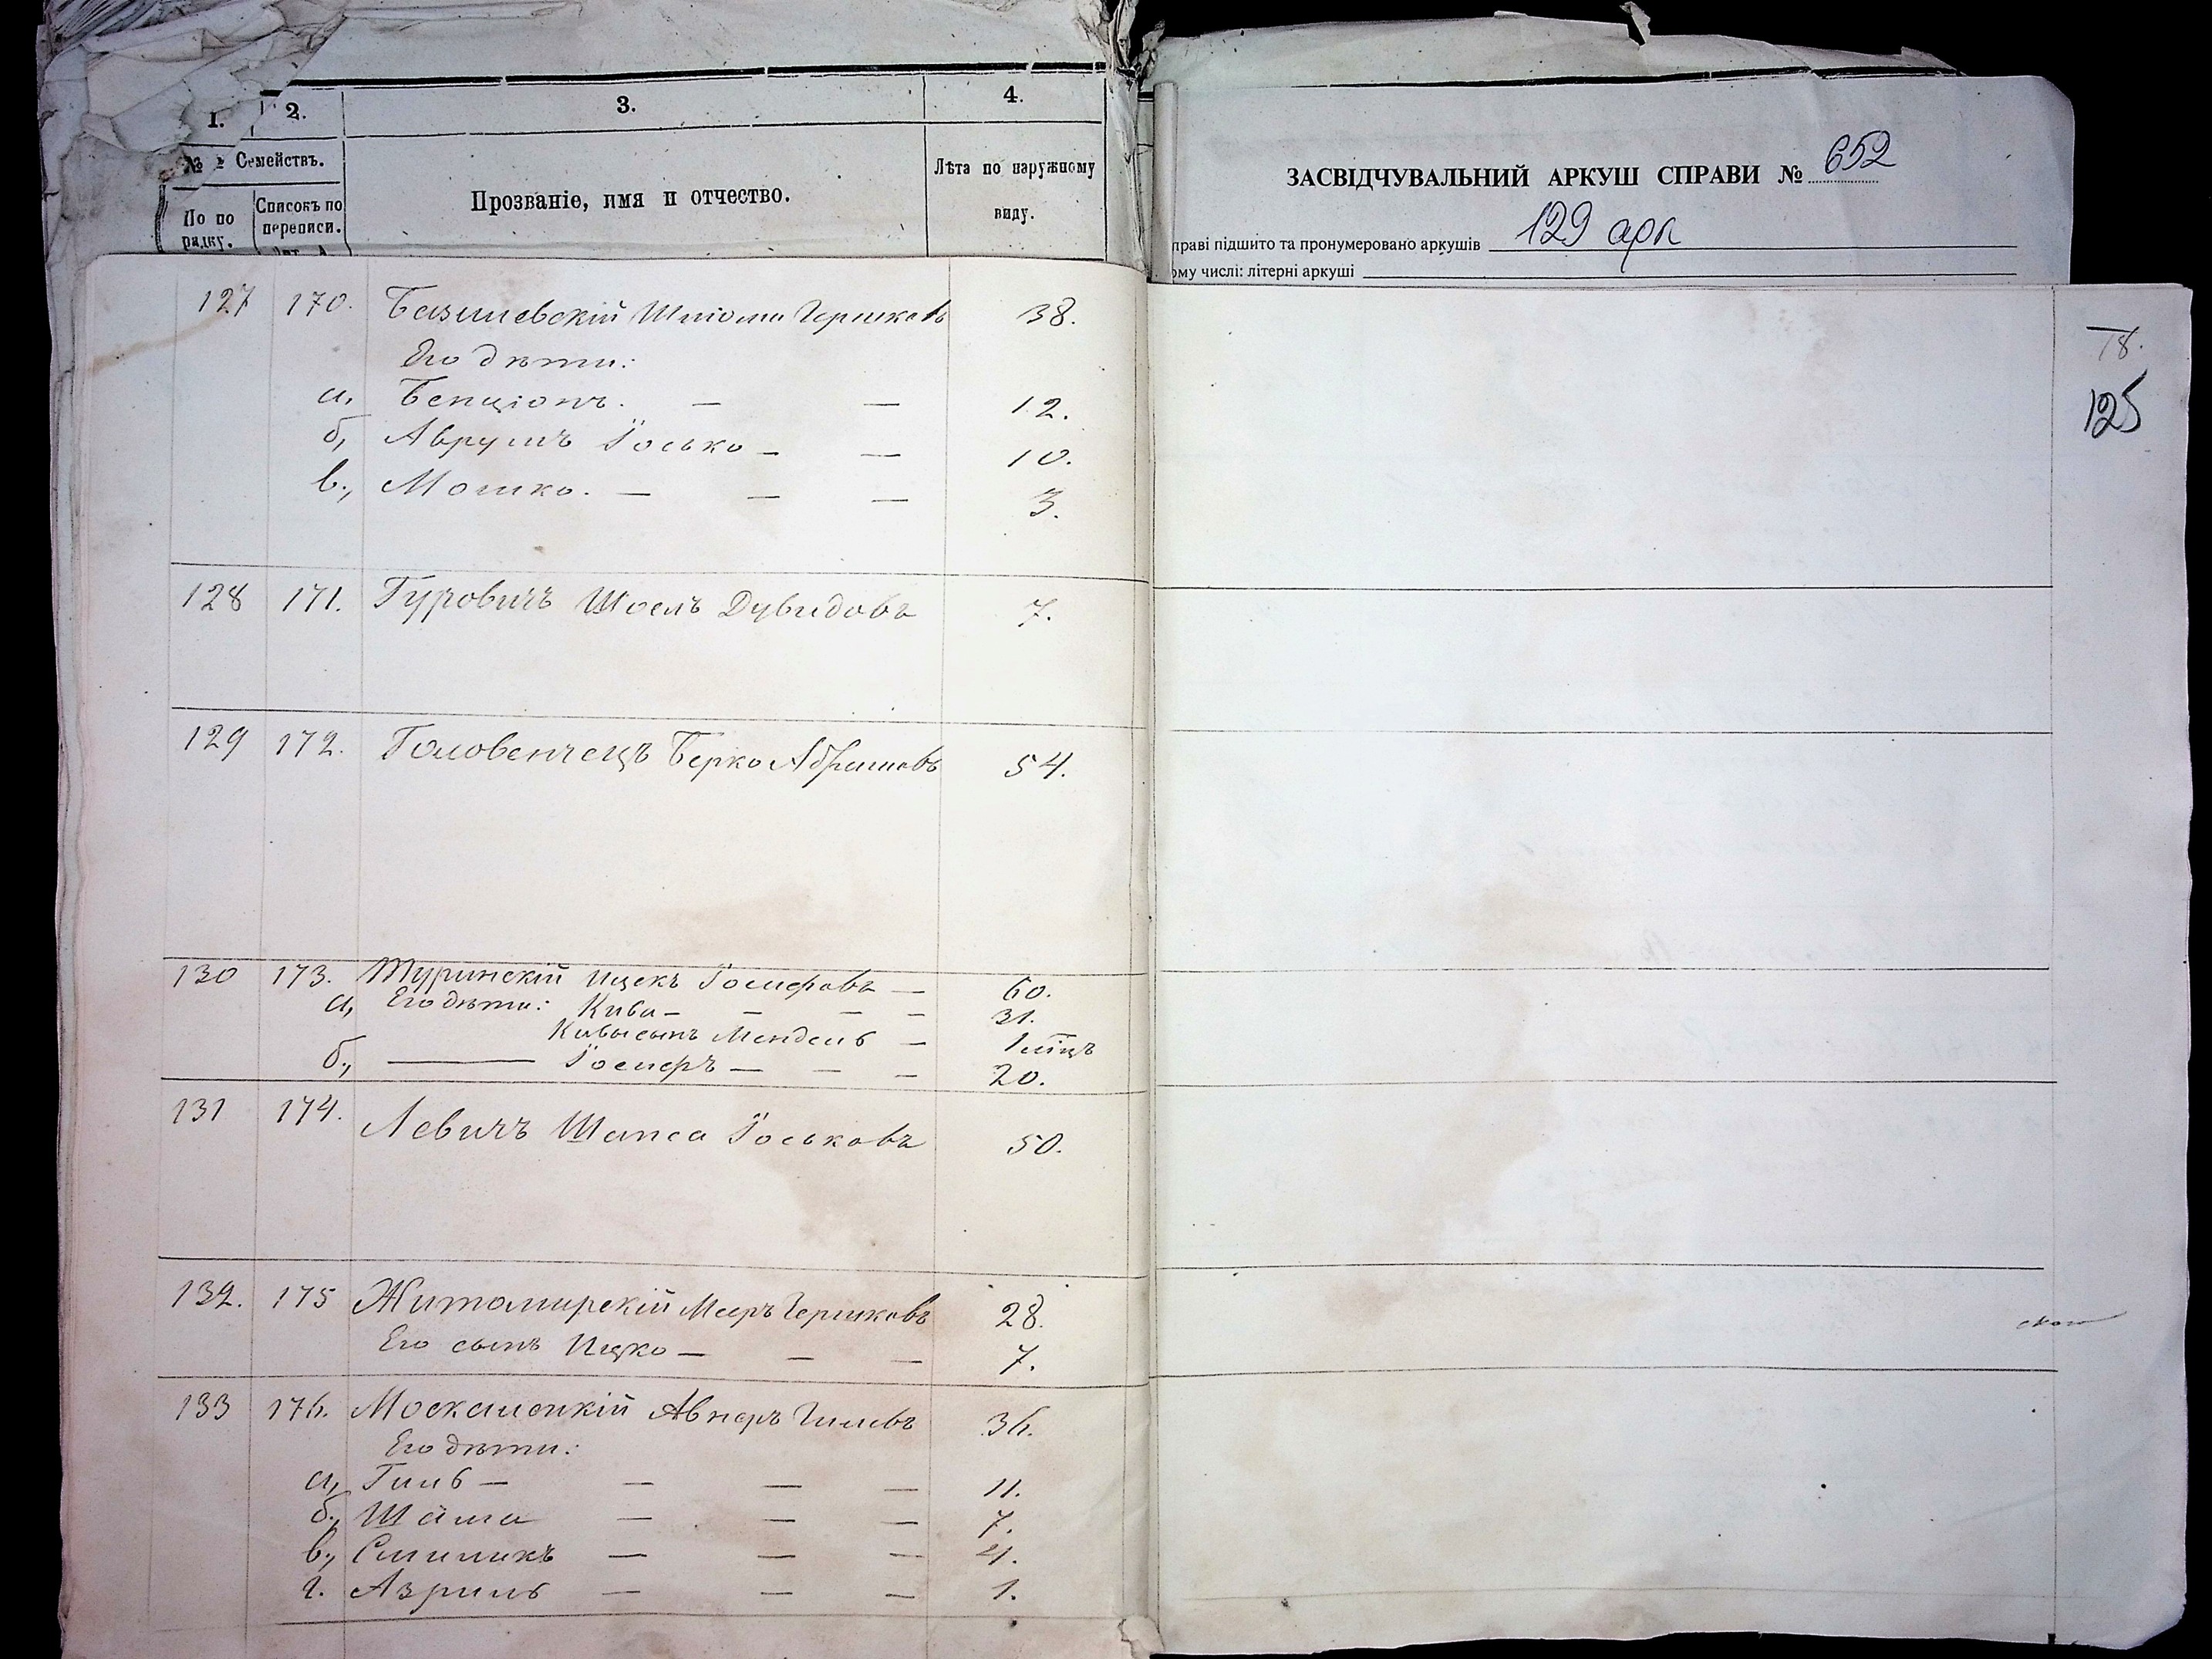 1. 2. 3. 4.
№ Семействъ.
По по рядку.
Списокъ по переписи.
Прозваніе, имя и отчество.
Лѣта по наружному виду.
ЗАСВІДЧУВАЛЬНИЙ АРКУШ СПРАВИ № 652
праві підшито та пронумеровано аркушів 129 арк
ому числі: літерні аркуші
78.
125
127 170. Базилевскій Шлiома Гершковъ 38.
Его дѣти:
а, Бенціонъ. — — 12.
б, Аврумъ Іосько — — 10.
в., Мошко. — — — 3.
128 171. Гуровичъ Шоелъ Дувидовъ 7.
129 172. Головенчецъ Берко Абрамовъ 54.
130 173. Туринскій Ицекъ Іосифовъ — 60.
а, Его дѣти: Кива — — — — 31.
Кивы сынъ Мендель — 1 мѣц
б., ——— Іосифъ — — — 20.
131 174. Левичъ Шапса Іоськовъ 50.
132. 175 Житомирскій Мееръ Гершковъ 28.
Его сынъ Ицко — — — 7.
133 176. Москаленкій Авнеръ Гилевъ 36.
Его дѣти:
а, Гиль — — — — 11.
б., Шама — — — 7.
в., Смиликъ — — — 4.
г. Азриль — — — 1.